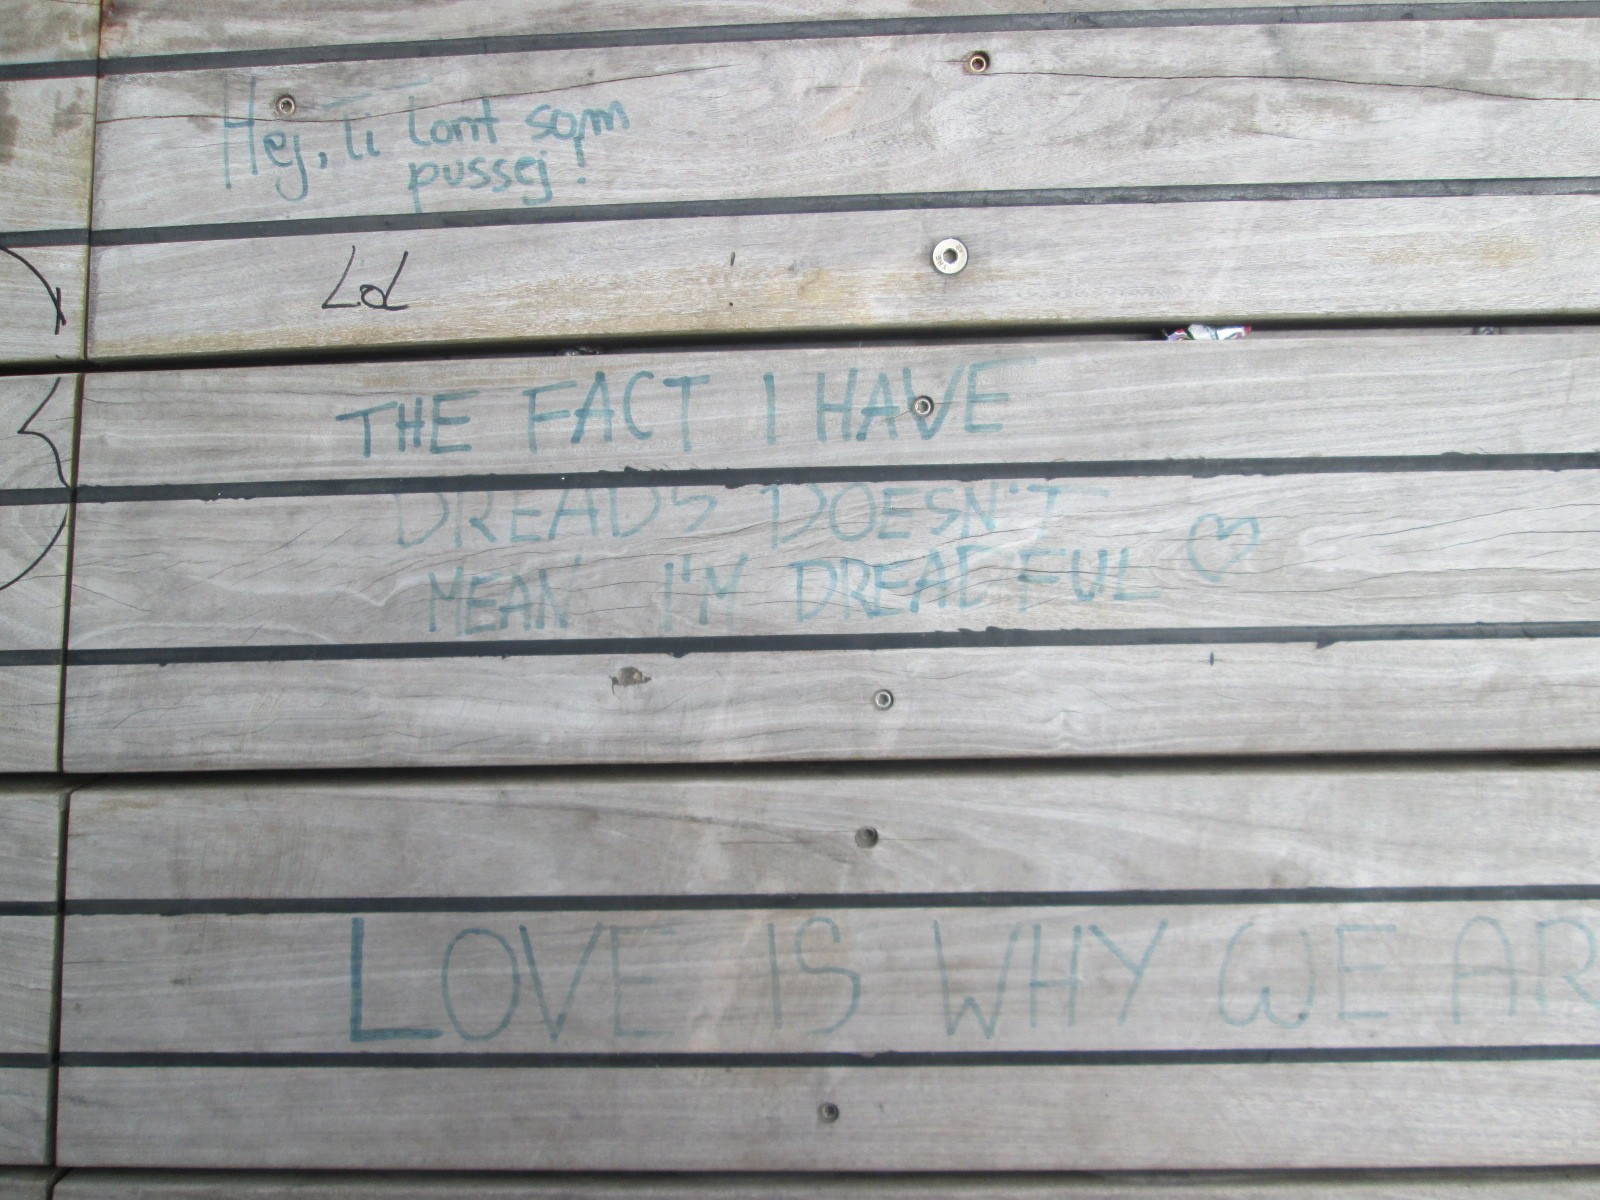 Hej, ti lont som
pussej!
LOL
THE FACT I HAVE
DREADS DOESN'T
MEAN I'M DREADFUL ♡
LOVE IS WHY WE AR